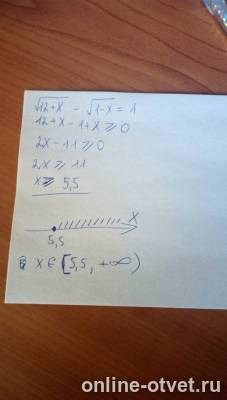 √12+x - √1-x = 1
12+x-1+x ⩾ 0
2x-11 ⩾ 0
2x ⩾ 11
x ⩾ 5,5
X
5,5
x ∈ [5,5, +∞)
online-otvet.ru